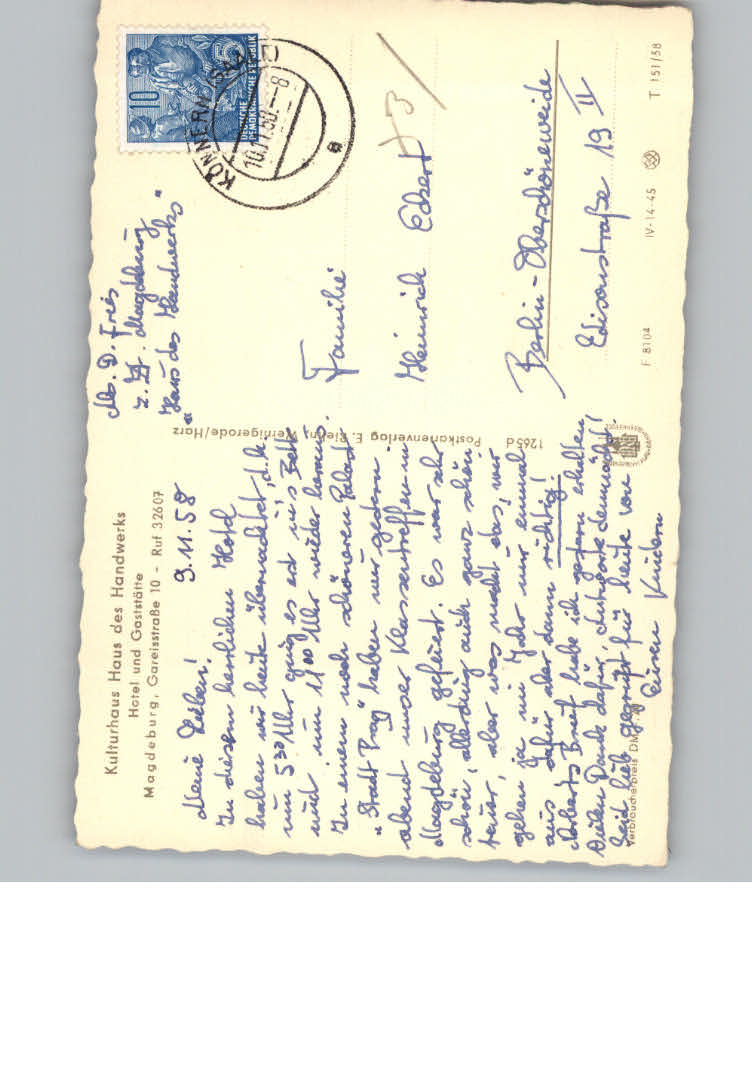 Kulturhaus Haus des Handwerks
Hotel und Gaststätte
Magdeburg, Gareisstraße 10 – Ruf 32607
9.11.58
Meine Lieben!
In diesem herrlichen Hotel
haben wir heute übernachtet, d.h.
um 5 30 Uhr ging es erst ins Bett
und um 11 00 Uhr wieder heraus.
In einem noch schöneren Palast
"Stadt Prag" haben wir gestern
abend unser Klassentreffen in
Magdeburg gefeiert. Es war sehr
schön, allerdings auch ganz schön
teuer, aber was macht das, wir
gehen ja im Jahr nur einmal
aus, dafür aber dann richtig!
Brief habe ich gestern erhalten
Vielen Dank dafür, Antwort demnächst!
Seid lieb gegrüßt für heute von
Euren Kindern
Verbraucherpreis DM
1265d Postkartenverlag E. Riehn, Wernigerode/Harz
Abs. D. Fries
z. Zt. Magdeburg
"Haus des Handwerks"
10
5
DEUTSCHE
DEMOKRATISCHE REPUBLIK
KÖNNERN (SAALE)
10.11.58.--8
a
Familie
Heinrich Eckert
Berlin-Oberschöneweide
Edisonstraße 19 II
F 8104 IV-14-45 T 151/58